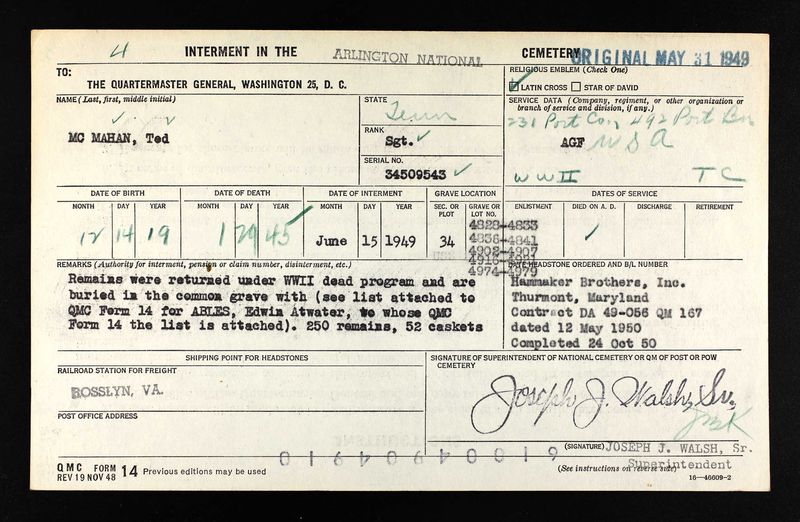 4 INTERMENT IN THE ARLINGTON NATIONAL CEMETERY ORIGINAL MAY 31 1949
TO:
THE QUARTERMASTER GENERAL, WASHINGTON 25, D. C.
RELIGIOUS EMBLEM (Check One)
LATIN CROSS STAR OF DAVID
NAME (Last, first, middle initial)
MC MAHAN, Ted
STATE
Tenn
RANK
Sgt.
SERIAL NO.
34509543
SERVICE DATA (Company, regiment, or other organization or
branch of service and division, if any.)
231 Port Co, 492 Port Bn
AGF USA
WWII TC
DATE OF BIRTH
MONTH DAY YEAR
12 14 19
DATE OF DEATH
MONTH DAY YEAR
1 29 45
DATE OF INTERMENT
MONTH DAY YEAR
June 15 1949
GRAVE LOCATION
SEC. OR PLOT
34
GRAVE OR LOT NO.
4828-4833
4836-4841
4902-4907
4974-4979
DATES OF SERVICE
ENLISTMENT DIED ON A. D. DISCHARGE RETIREMENT
REMARKS (Authority for interment, pension or claim number, disinterment, etc.)
Remains were returned under WWII dead program and are
buried in the common grave with (see list attached to
QMC Form 14 for ABLES, Edwin Atwater, to whose QMC
Form 14 the list is attached). 250 remains, 52 caskets
DATE HEADSTONE ORDERED AND B/L NUMBER
Hammaker Brothers, Inc.
Thurmont, Maryland
Contract DA 49-056 QM 167
dated 12 May 1950
Completed 24 Oct 50
SHIPPING POINT FOR HEADSTONES
RAILROAD STATION FOR FREIGHT
ROSSLYN, VA.
POST OFFICE ADDRESS
SIGNATURE OF SUPERINTENDENT OF NATIONAL CEMETERY OR QM OF POST OR POW
CEMETERY
Joseph J. Walsh, Sr.
(SIGNATURE) JOSEPH J. WALSH, Sr.
Superintendent
(See instructions on reverse side)
16—46609-2
QMC FORM 14
REV 19 NOV 48
Previous editions may be used